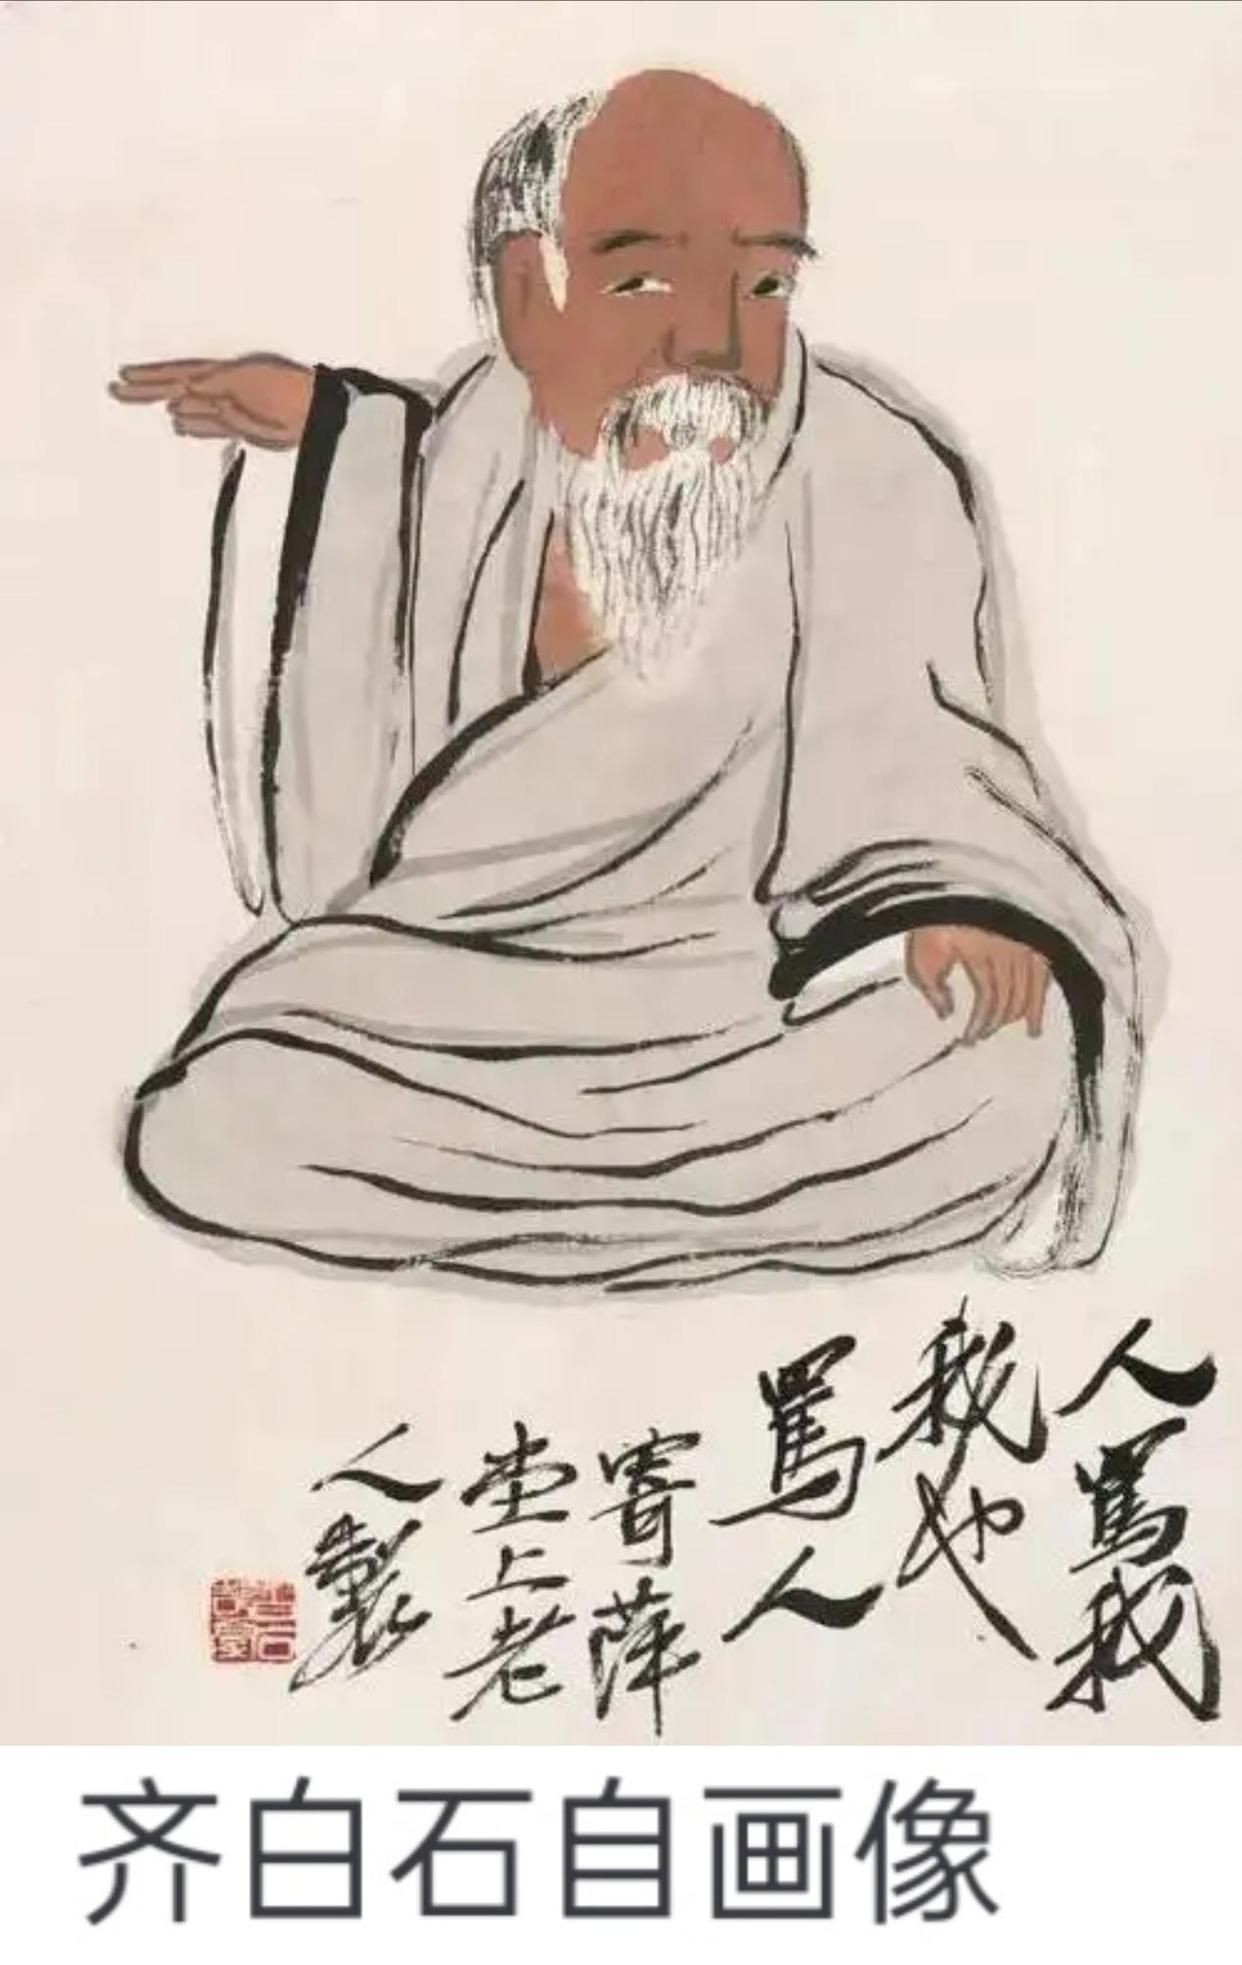 人罵我
我也
罵人
寄萍
堂上老
人製
齐白石自画像